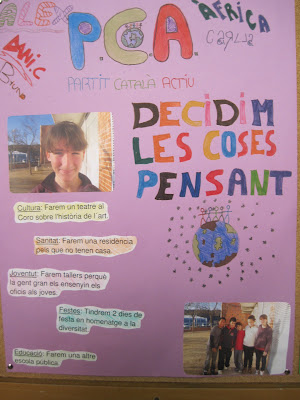 ALEX
ÀFRICA
CARLA
DANI.C
Bruno
P.C.A.
PARTIT CATALÀ ACTIU
DECIDIM
LES COSES
PENSANT
Cultura: Farem un teatre al
Coro sobre l'història de l'art.
Sanitat: Farem una residència
pels que no tenen casa.
Joventut: Farem tallers perquè
la gent gran els ensenyin els
oficis als joves.
Festes: Tindrem 2 dies de
festa en homenatge a la
diversitat.
Educació: Farem una altre
escola pública.